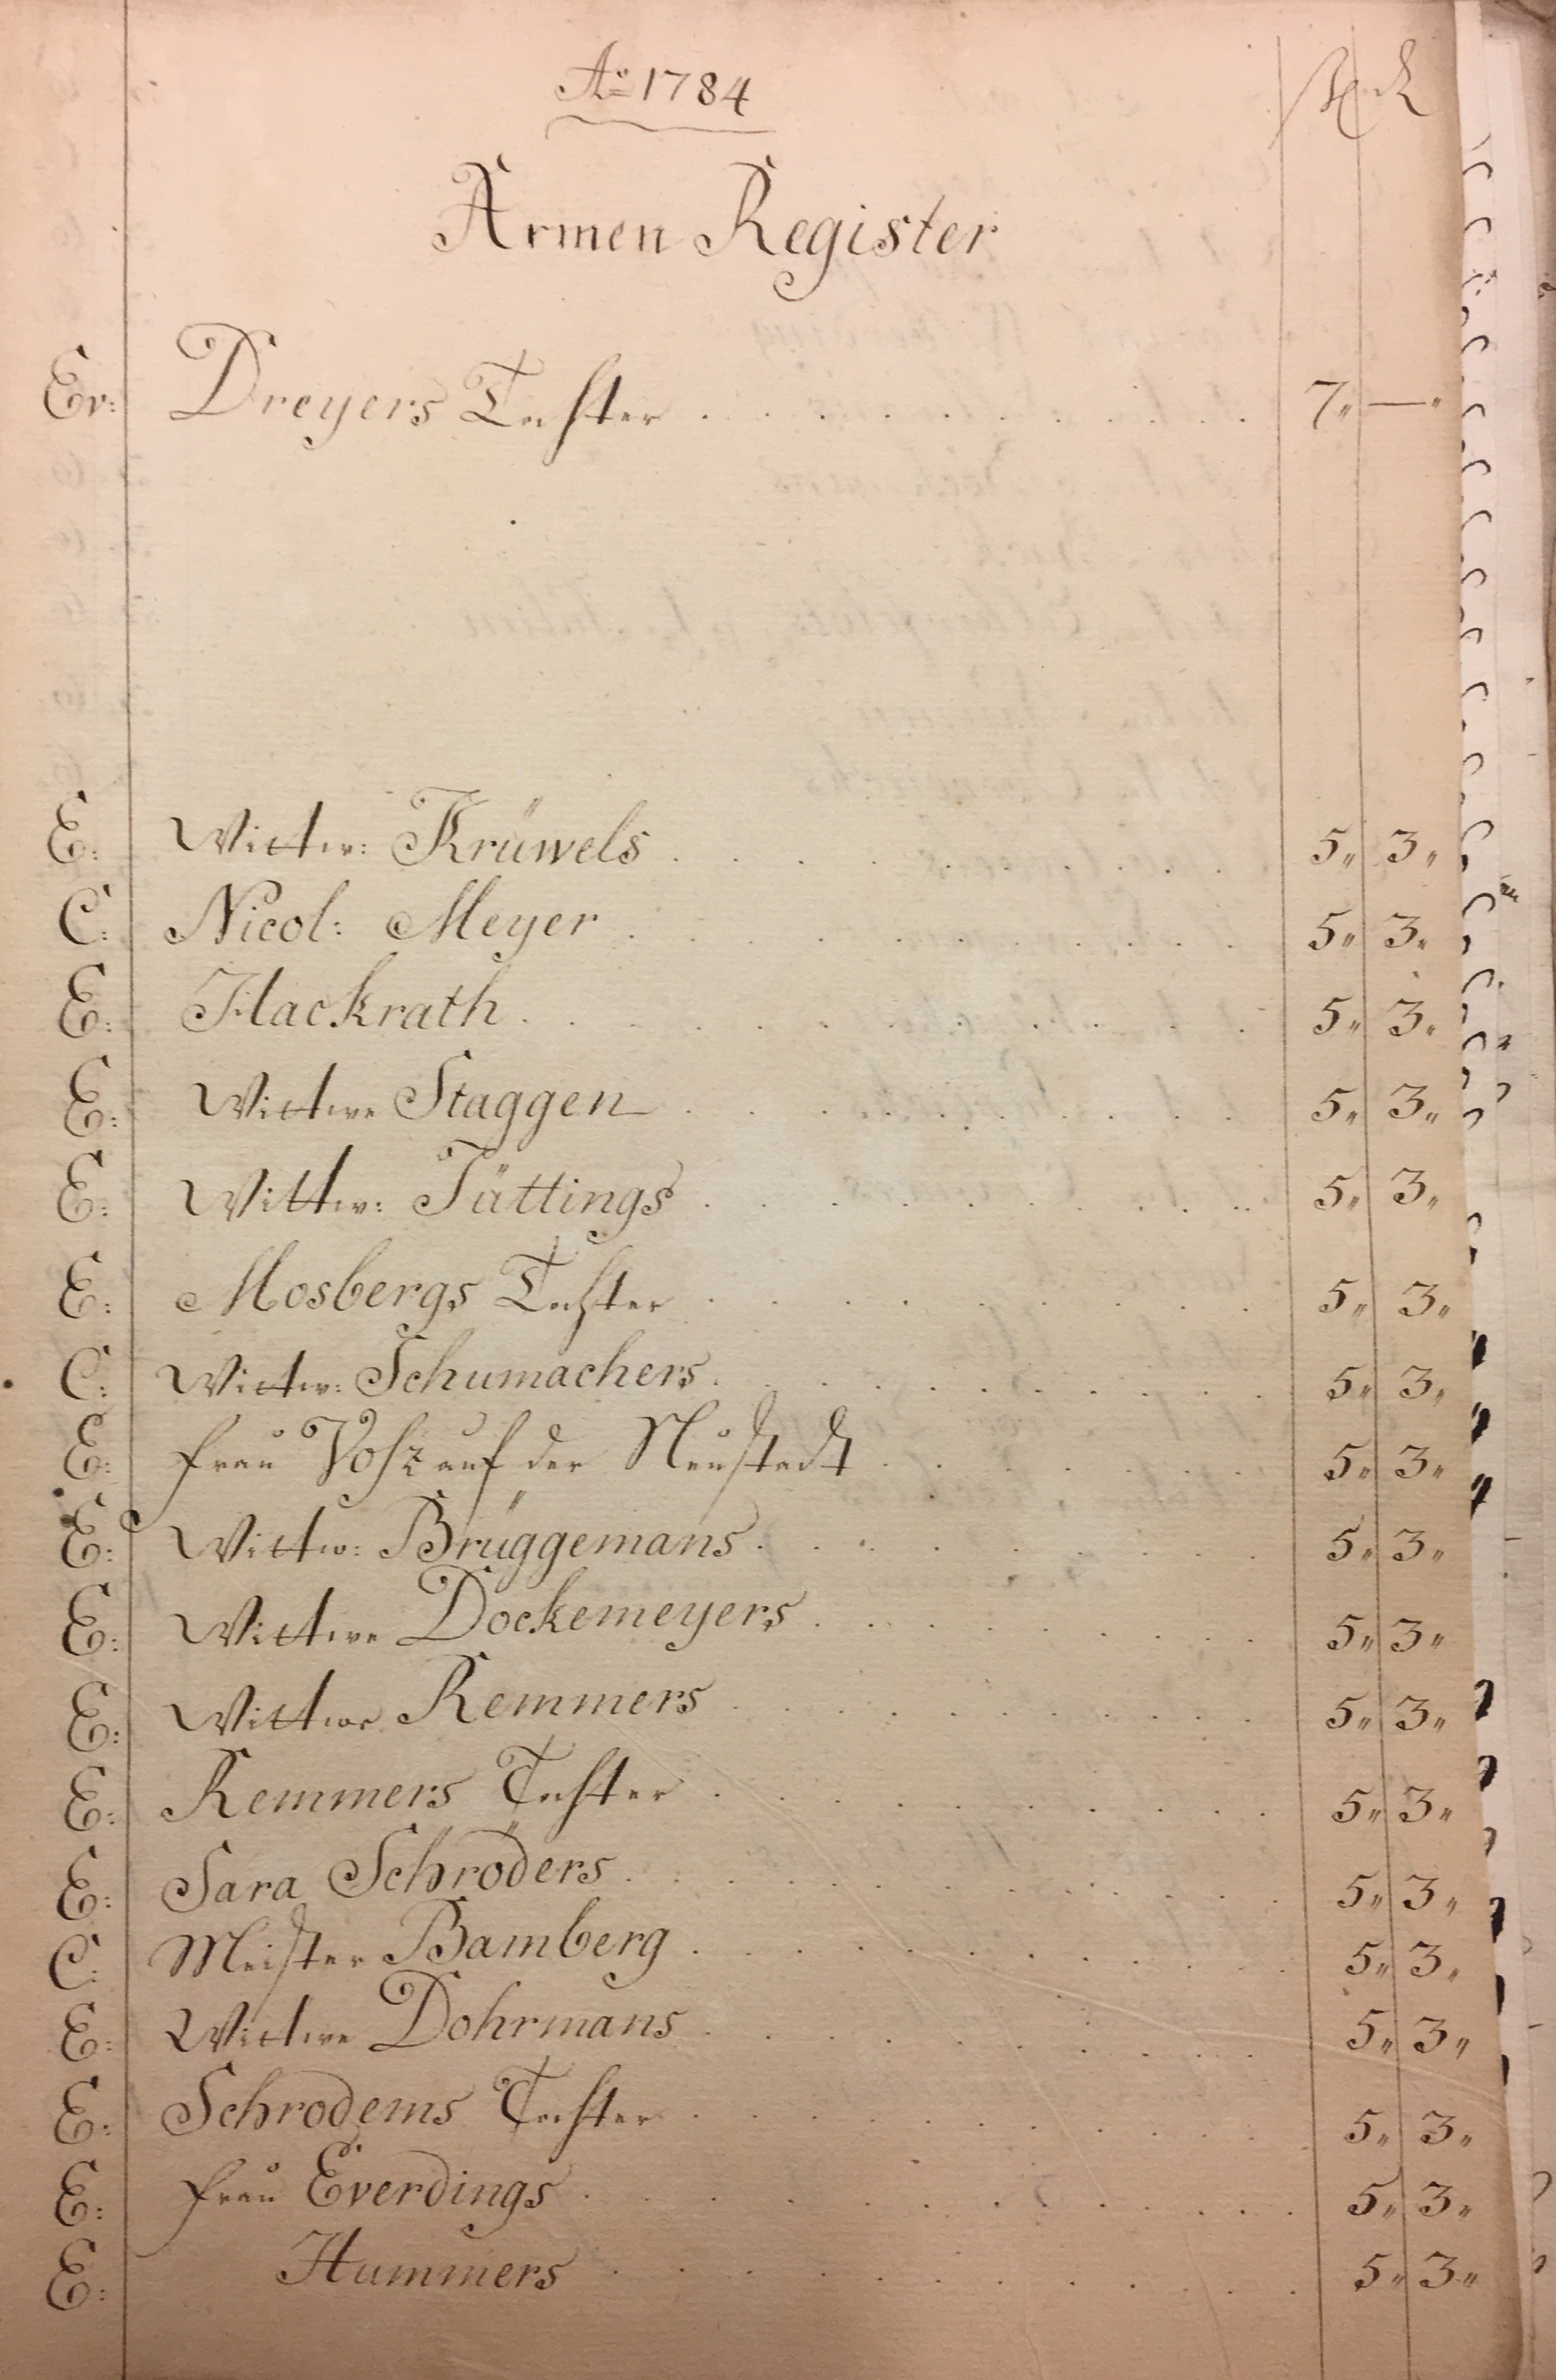 Ao 1784
Armen Register
Er: Dreyers Tochter . . . . . . . . . . 7" —"
E: Wittw: Krüwels . . . . . . . . . . 5" 3"
C: Nicol: Meyer . . . . . . . . . . 5" 3"
E: Hackrath . . . . . . . . . . 5" 3"
E: Wittwe Staggen . . . . . . . . . . 5" 3"
E: Wittw: Tüttings . . . . . . . . . . 5" 3"
E: Mosbergs Tochter . . . . . . . . . . 5" 3"
C: Wittw: Schumachers . . . . . . . . . . 5" 3"
E: frau Vosz auf der Neustadt . . . . . . . . 5" 3"
E: Wittw: Brüggemans . . . . . . . . . . 5" 3"
E: Wittwe Dockemeyers . . . . . . . . . . 5" 3"
E: Wittwe Remmers . . . . . . . . . . 5" 3"
E: Remmers Tochter . . . . . . . . . . 5" 3"
E: Sara Schröders . . . . . . . . . . 5" 3"
C: Meister Bamberg . . . . . . . . . . 5" 3"
E: Wittwe Dohrmans . . . . . . . . . . 5" 3"
E: Schrodems Tochter . . . . . . . . . . 5" 3"
E: frau Everdings . . . . . . . . . . 5" 3"
E: Hummers . . . . . . . . . . 5" 3"